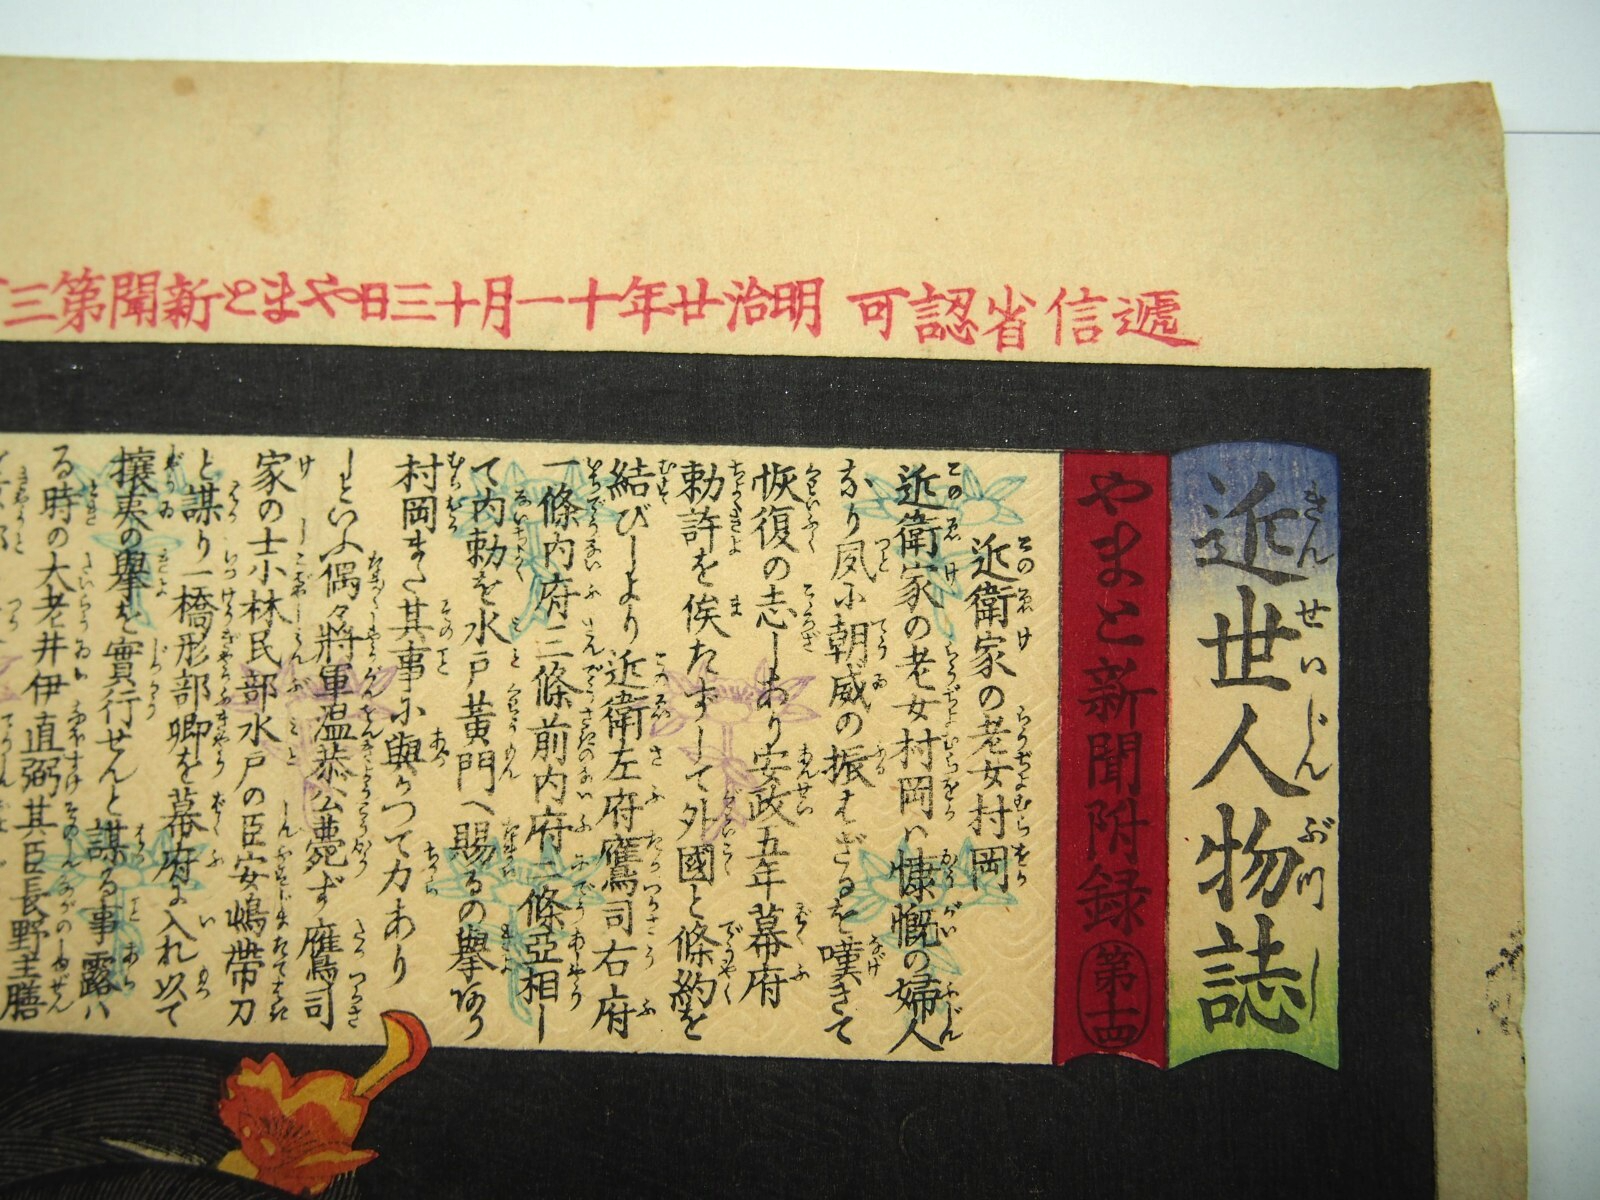 遞信省認可
明治廿年十一月十三日やまと新聞第三
近世人物誌
きんせいじんぶつし
やまと新聞附録
第十四
近衛家の老女村岡
近衛家の老女村岡ハ慷慨の婦人
なり夙に朝威の振はざるを嘆きて
恢復の志しあり安政五年幕府
勅許を俟たずして外國と條約を
結びしより近衛左府鷹司右府
一條内府三條前内府二條亞相し
て内勅を水戸黄門へ賜るの擧あり
村岡また其事に與つて力あり
しといふ偶々將軍温恭公薨ず鷹司
家の士小林民部水戸の臣安嶋帶刀
と謀り一橋刑部卿を幕府に入れ以て
攘夷の擧を實行せんと謀る事露ハ
る時の大老井伊直弼其臣長野主膳